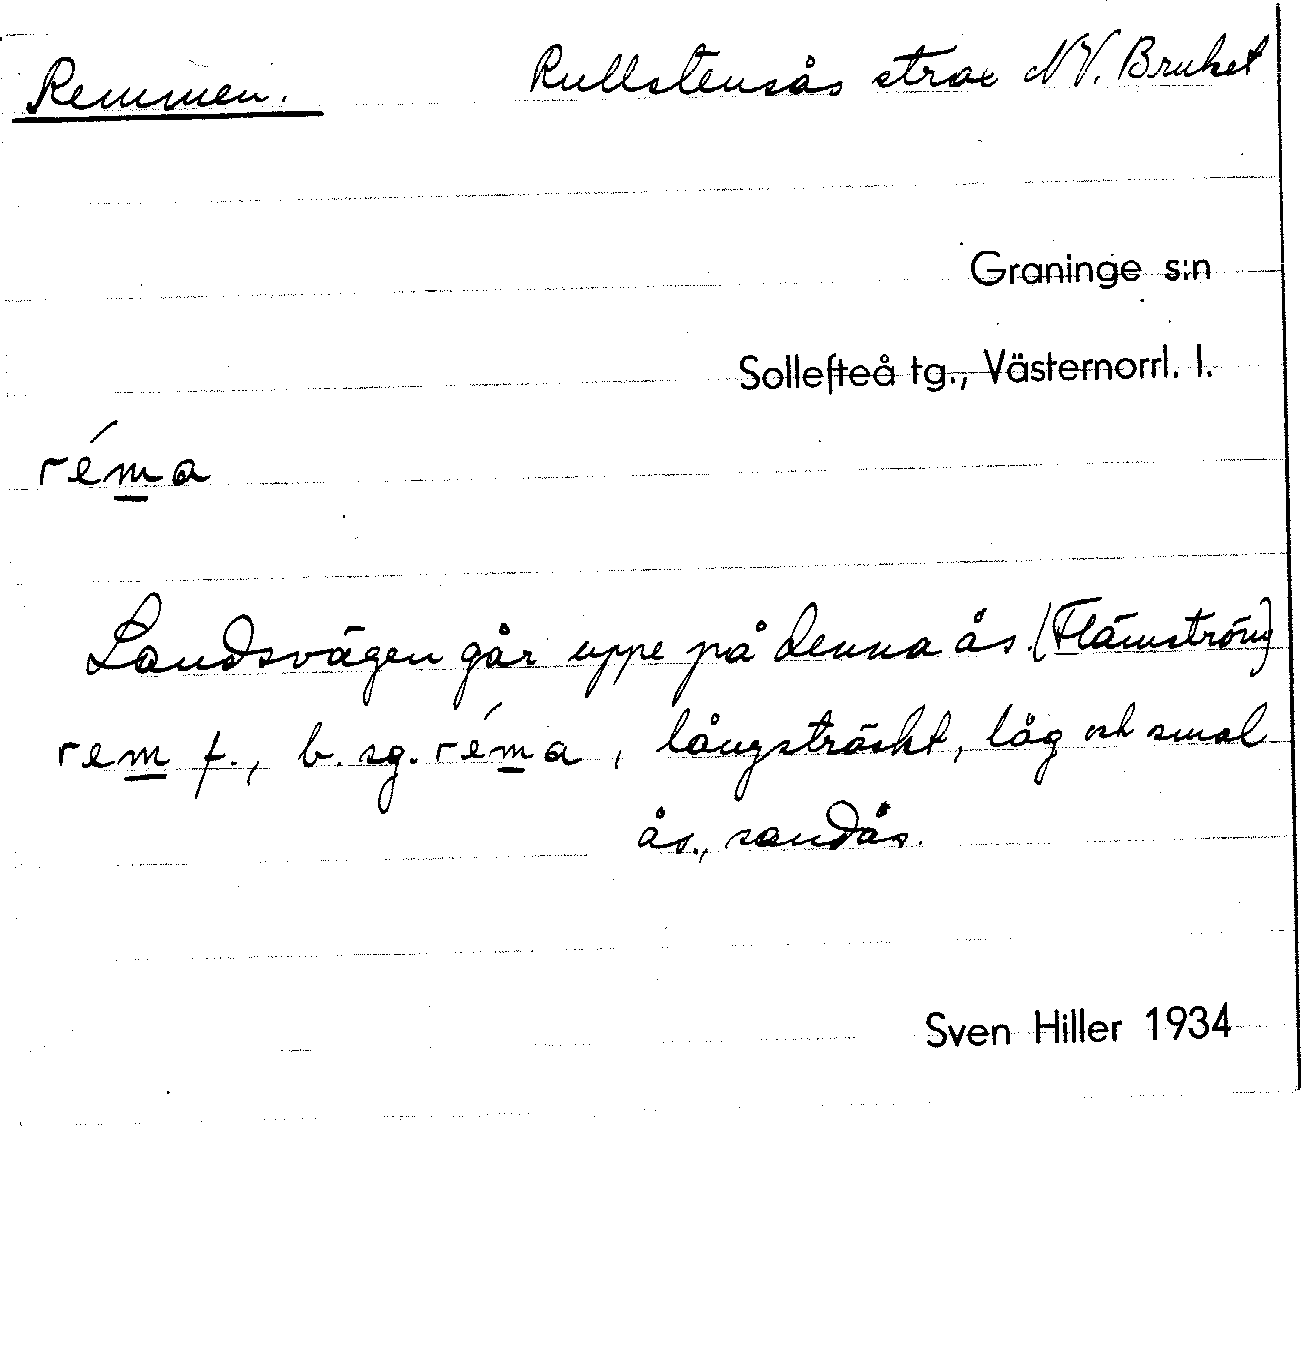 Remmen. Rullstensås strax NV. Bruket
Graninge s:n
Sollefteå tg., Västernorrl. l.
réma
Landsvägen går uppe på denna ås. (Flämström)
rem f., b. sg. réma, långsträckt, låg och smal
ås., sandås.
Sven Hiller 1934